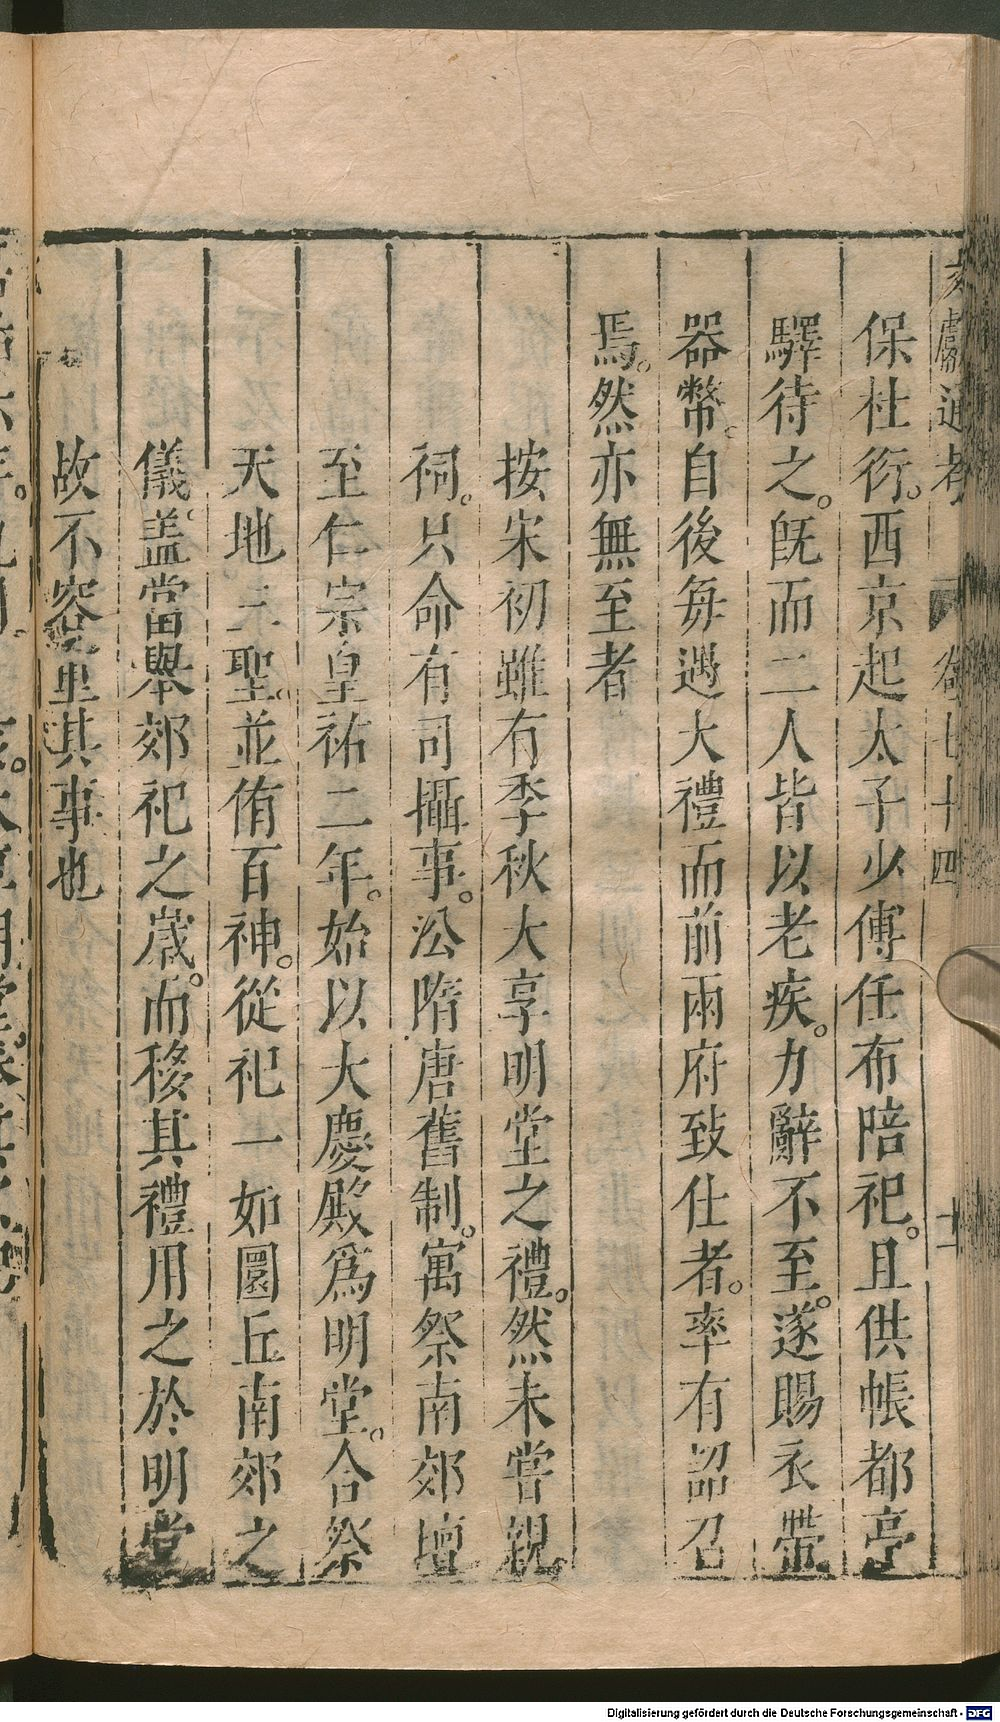 通考 卷七十四 十二
保杜衍。西京起太子少傅任布陪祀。且供帳都亭
驛待之。旣而二人皆以老疾。力辭不至。遂賜衣帶
器幣。自後每遇大禮而前兩府致仕者。率有詔召
焉。然亦無至者
按宋初雖有季秋大享明堂之禮。然未嘗親
祠。只命有司攝事。㳂隋唐舊制。寓祭南郊壇
至仁宗皇祐二年。始以大慶殿爲明堂。合祭
天地三聖。並侑百神。從祀一如圜丘南郊之
儀。盖當舉郊祀之歲。而移其禮用之於明堂
故不容里其事也
Digitalisierung gefördert durch die Deutsche Forschungsgemeinschaft - DFG